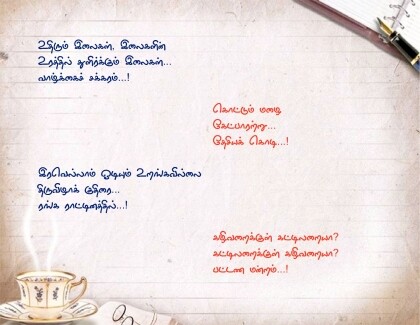 உதிரும் இலைகள், இலைகளின்
உரத்தில் துளிர்க்கும் இலைகள்...
வாழ்க்கைச் சக்கரம்...!
கொட்டும் மழை
கேட்பாரற்று...
தேசியக் கொடி...!
இரவெல்லாம் ஓடியும் உறங்கவில்லை
திருவிழாக் குதிரை...
ரங்க ராட்டினத்தில்...!
கழிவறைக்குள் கட்டிலறையா?
கட்டிலறைக்குள் கழிவறையா?
பட்டண மன்றம்...!